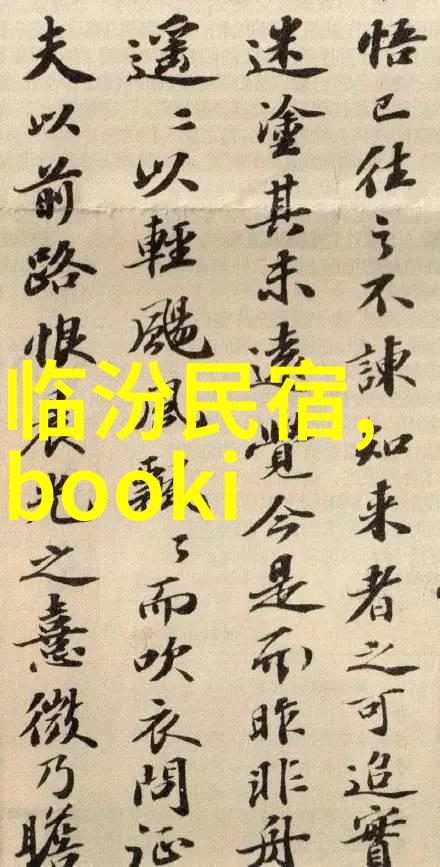 悟已往之不諫知来者之可追實
迷塗其未遠覺今是而昨非舟
遥〻以輕颺風飄〻而吹衣問征
夫以前路恨晨光之熹微乃瞻
临汾民宿,
booki